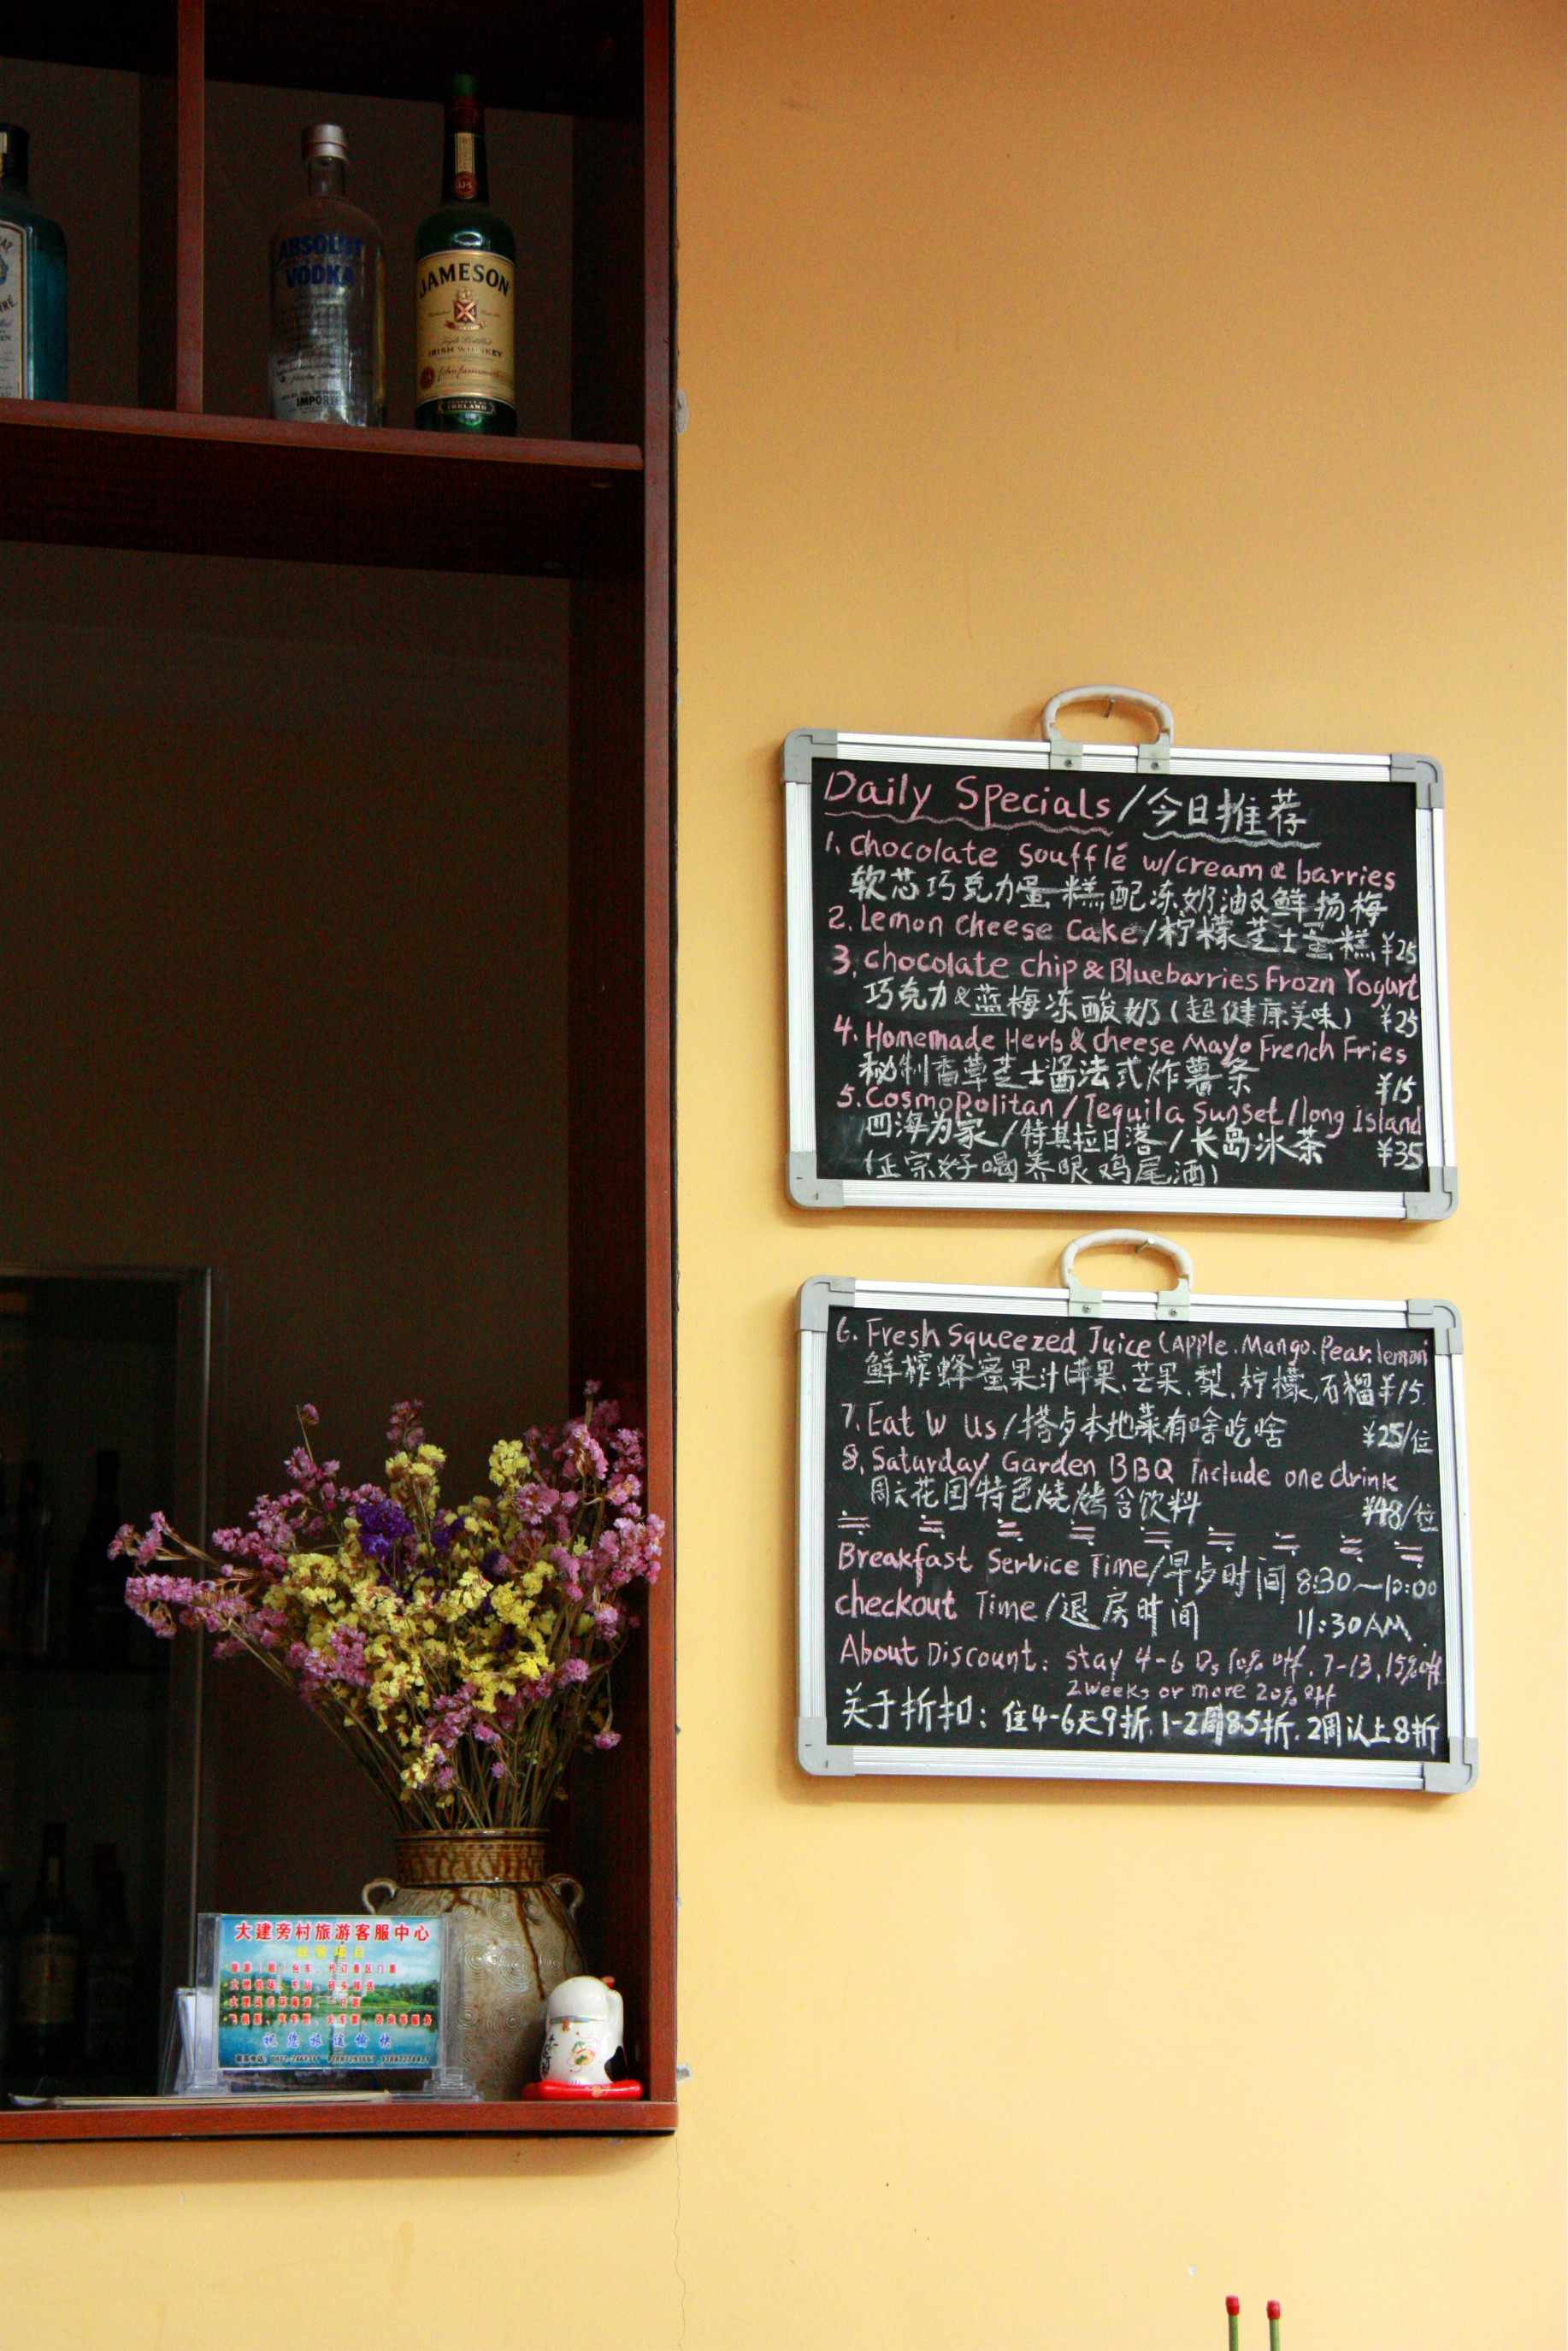 ABSOLUT
VODKA
IMPORTED
JAMESON
Triple Distilled
IRISH WHISKEY
John Jameson
PRODUCT OF
IRELAND
Daily Specials/今日推荐
1. chocolate soufflé w/cream & barries
软芯巧克力蛋糕配冻奶油&鲜杨梅
2. Lemon Cheese Cake/柠檬芝士蛋糕 ¥25
3. chocolate chip & Bluebarries Frozn Yogurt
巧克力&蓝梅冻酸奶(超健康美味) ¥25
4. Homemade Herb & cheese Mayo French Fries
秘制香草芝士酱法式炸薯条 ¥15
5. Cosmopolitan/Tequila Sunset/long Island
四海为家/特其拉日落/长岛冰茶 ¥35
(正宗好喝养眼鸡尾酒)
6. Fresh Squeezed Juice (Apple.Mango.Pear.lemon
鲜榨蜂蜜果汁(苹果.芒果.梨.柠檬.石榴 ¥15
7. Eat W Us/搭歺本地菜有啥吃啥 ¥25/位
8. Saturday Garden BBQ include one drink
周六花园特色烧烤含饮料 ¥48/位
Breakfast Service Time/早歺时间 8:30~10:00
checkout Time/退房时间 11:30AM
About Discount: stay 4-6 Ds 10% off. 7-13, 15% off
2weeks or more 20% off
关于折扣: 住4-6天9折. 1-2周8.5折. 2周以上8折
大建旁村旅游客服中心
经营项目
祝您旅途愉快